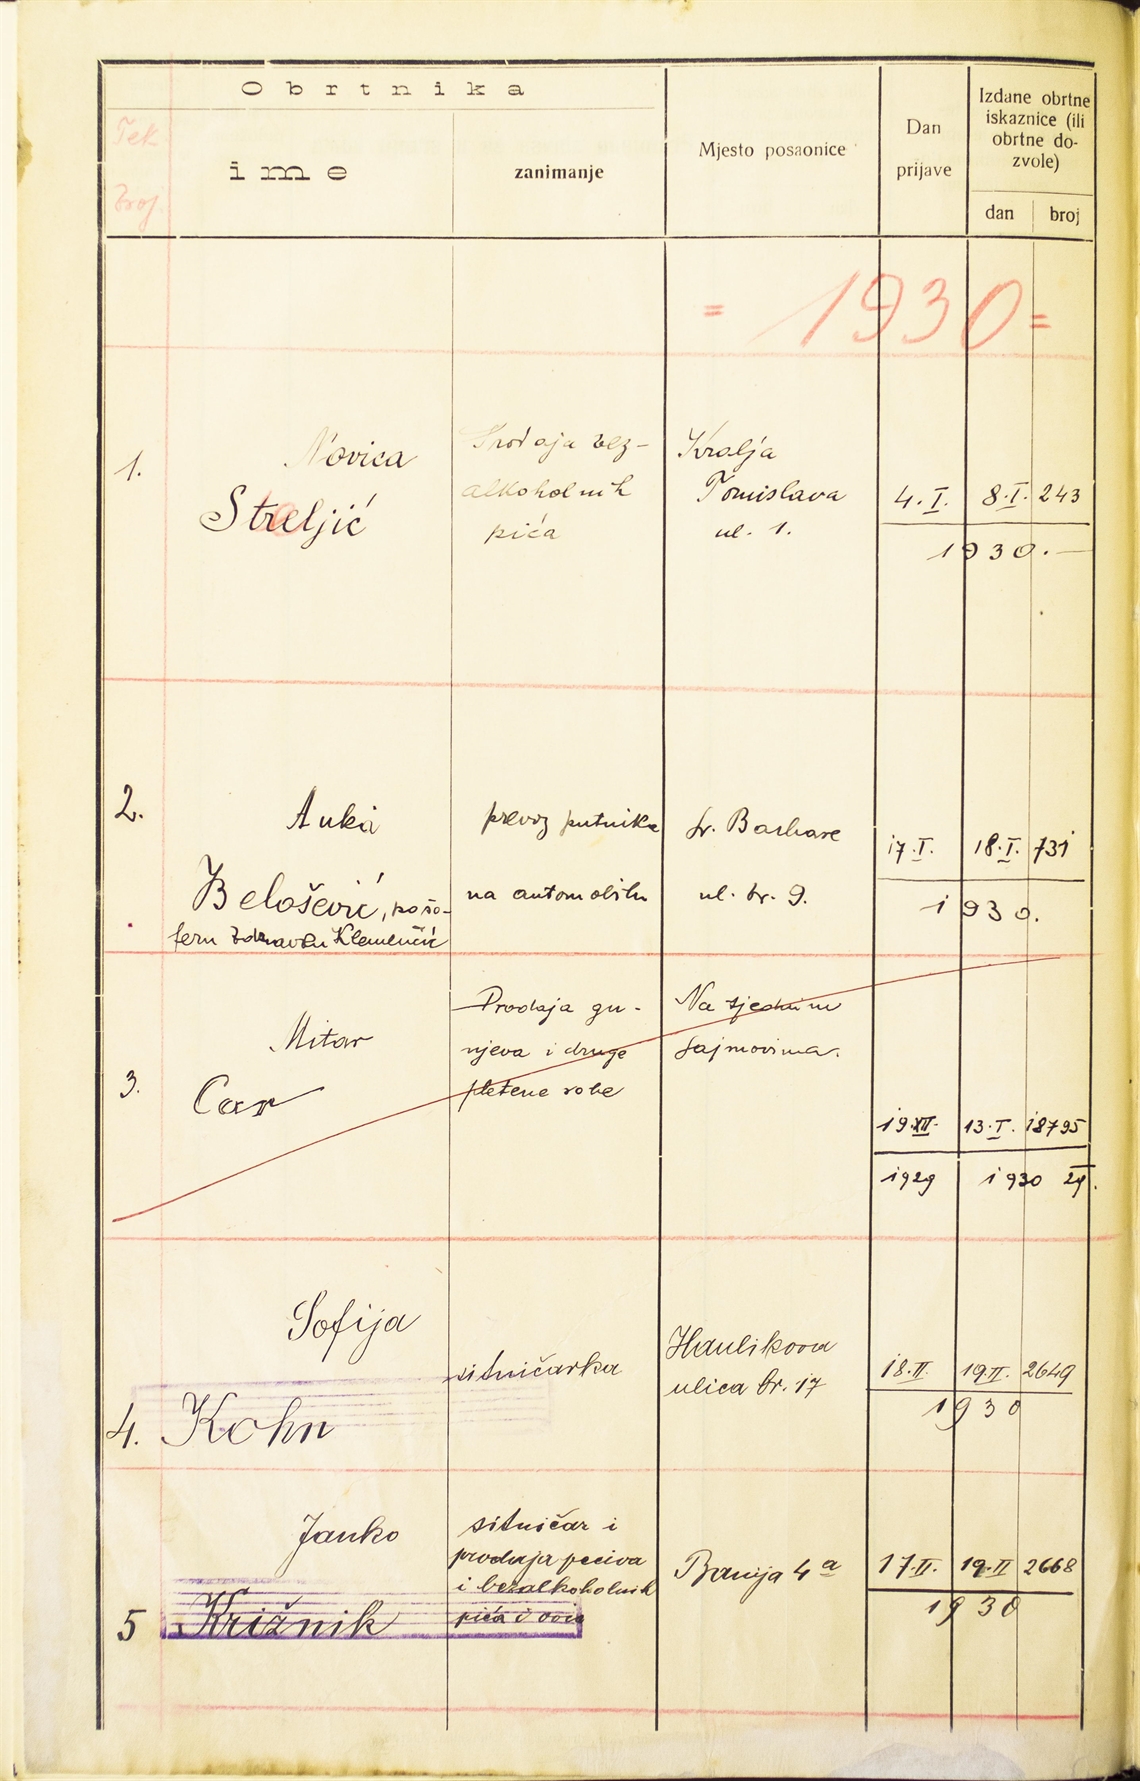 Obrtnika
Tek
broj.
ime
zanimanje
Mjesto posaonice
Dan
prijave
Izdane obrtne
iskaznice (ili
obrtne do-
zvole)
dan
broj
= 1930 =
1.
Novica
Streljić
Prodaja bez-
alkoholnih
pića
Kralja
Tomislava
ul. 1.
4. I.
8. I.
243
1930.
2.
Anka
Belošević, po šo-
feru Zdravku Klemenčić
prevoz putnika
na automobilu
Sv. Barbare
ul. br. 9.
17. I.
18. I.
731
1930.
3.
Mitar
Car
Prodaja gu-
njeva i druge
pletene robe
Na tjednim
sajmovima.
19. XII.
13. I.
18795
1929
1930
29.
4.
Sofija
Kohn
sitničarka
Haulikova
ulica br. 17
18. II.
19. II.
2649
1930
5
Janko
Križnik
sitničar i
prodaja peciva
i bezalkoholnih
pića i voća
Banija 4a
17. II.
19. II
2668
1930